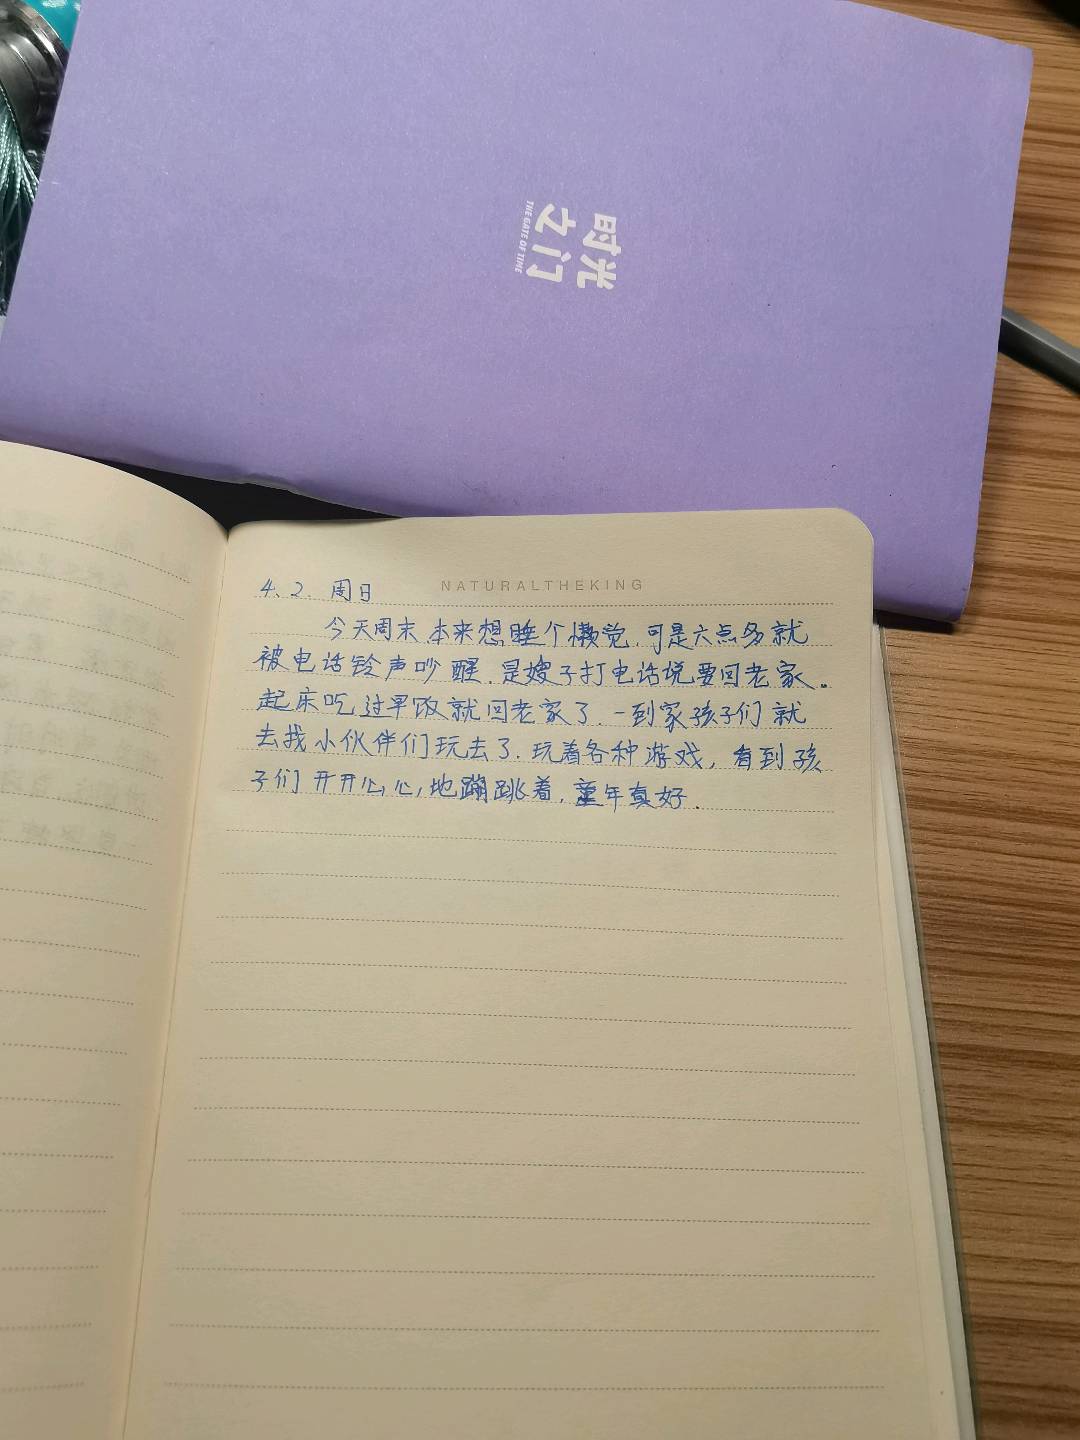 时光
之门
THE GATE OF TIME
NATURALTHEKING
4.2. 周日
今天周末本来想睡个懒觉,可是六点多就
被电话铃声吵醒.是嫂子打电话说要回老家。
起床吃过早饭就回老家了.一到家孩子们就
去找小伙伴们玩去了.玩着各种游戏,看到孩
子们开开心心地蹦跳着,童年真好.